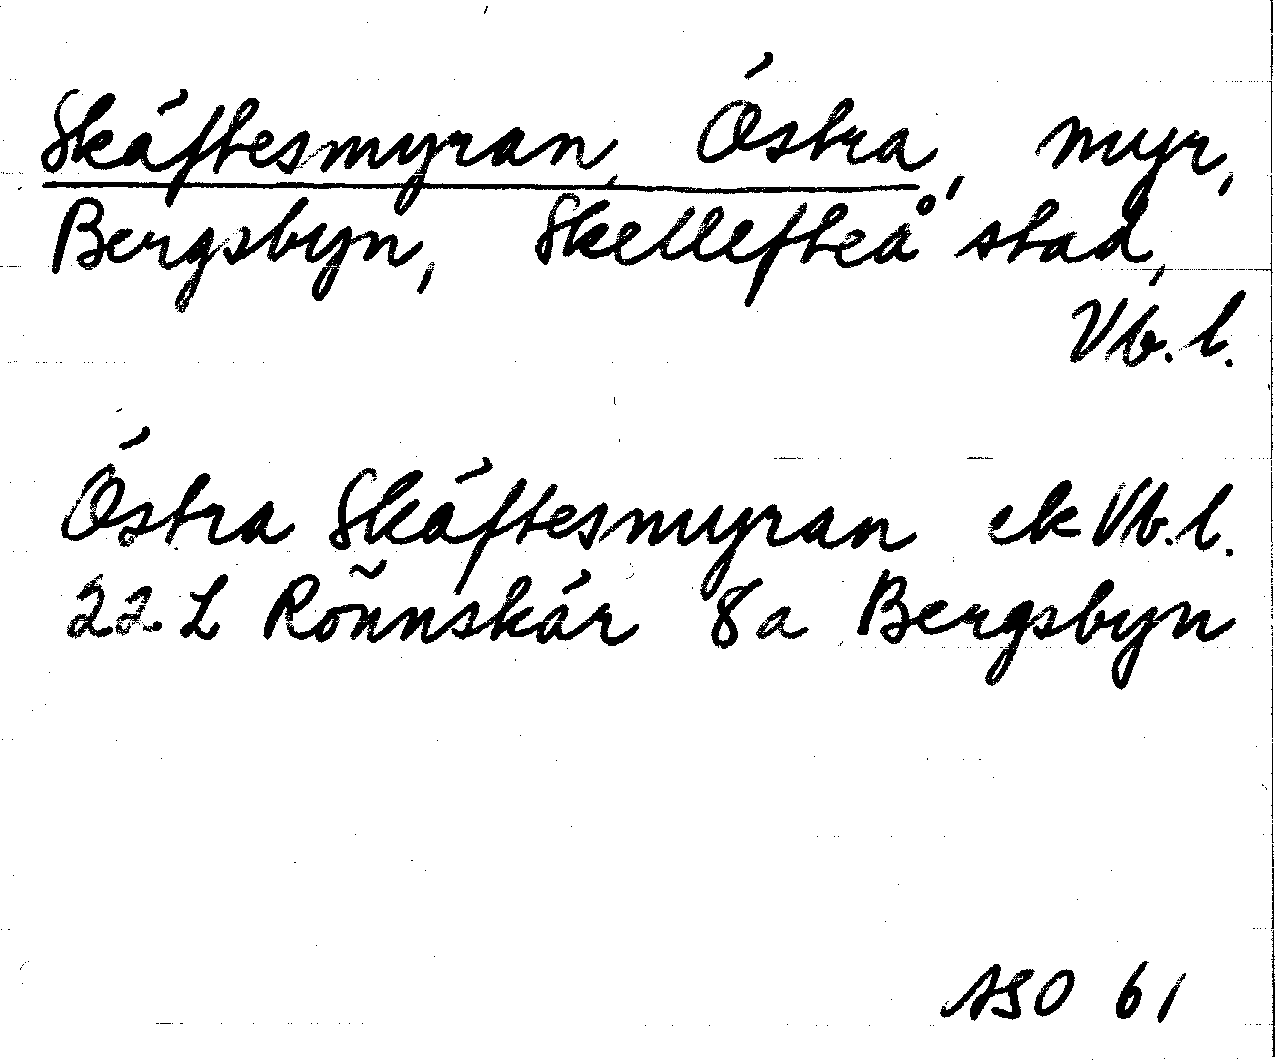 Skäftesmyran, Östra, myr,
Bergsbyn, Skellefteå stad,
Vb.l.
Östra Skäftesmyran ek Vb.l.
22 L Rönnskär 8a Bergsbyn
ASO 61